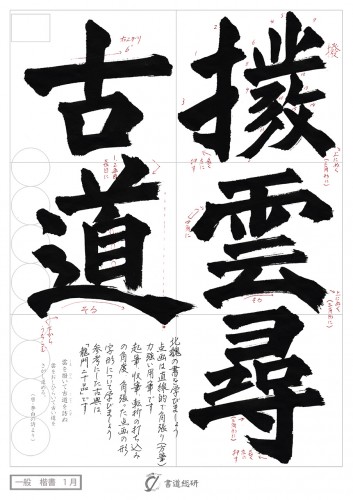 撥雲尋
古道
北魏の書を学びましょう
点画は直線的で角張り(方筆)
力強い用筆です
起筆、収筆、転折の打ち込み
の角度、角張った点画の形、
字形について学びましょう
参考にした古典は、
「龍門二十品」です
雲を撥いて古道を訪ね
(唐・李白の詩より)
そる
一般 楷書 1月
書道総研